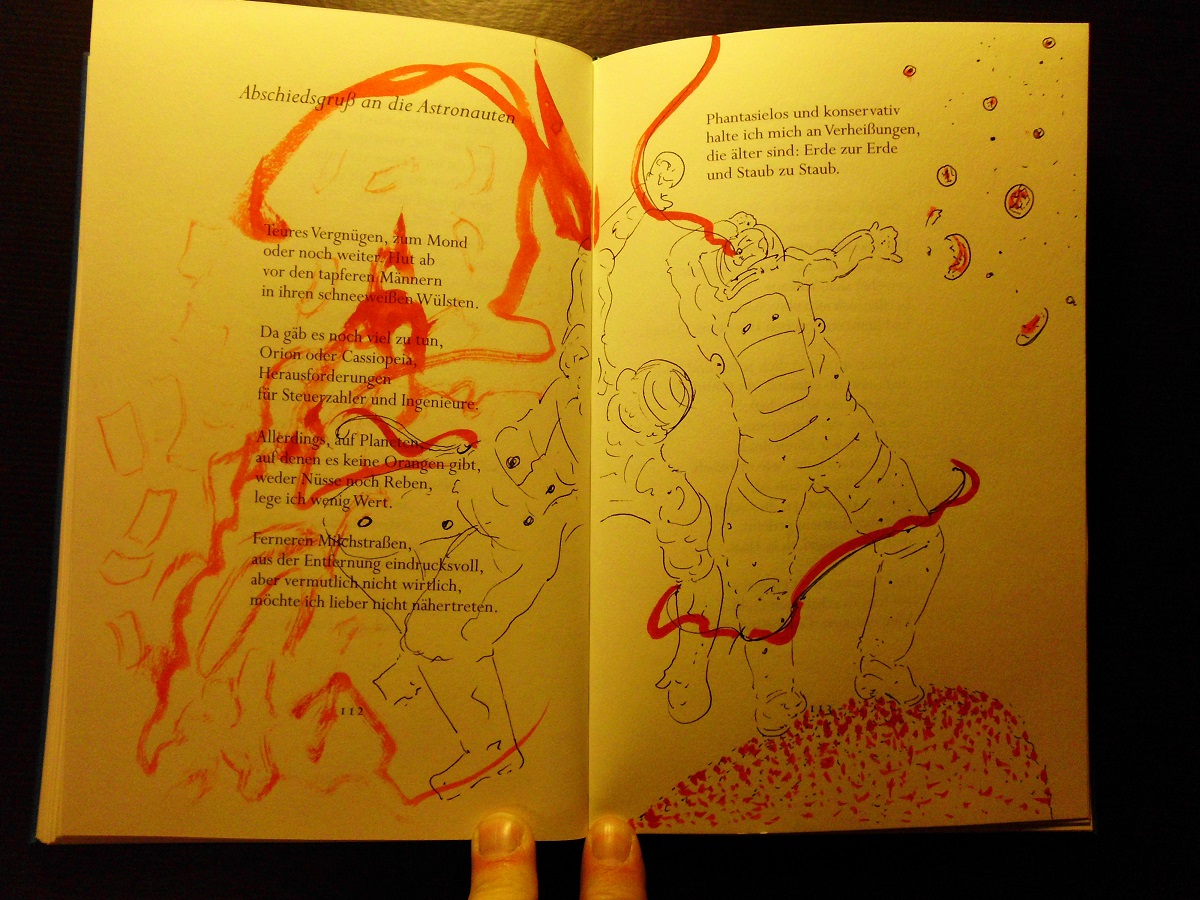 Abschiedsgruß an die Astronauten
Teures Vergnügen, zum Mond
oder noch weiter. Hut ab
vor den tapferen Männern
in ihren schneeweißen Wülsten.
Da gäb es noch viel zu tun,
Orion oder Cassiopeia,
Herausforderungen
für Steuerzahler und Ingenieure.
Allerdings, auf Planeten,
auf denen es keine Orangen gibt,
weder Nüsse noch Reben,
lege ich wenig Wert.
Ferneren Milchstraßen,
aus der Entfernung eindrucksvoll,
aber vermutlich nicht wirtlich,
möchte ich lieber nicht nähertreten.
112
Phantasielos und konservativ
halte ich mich an Verheißungen,
die älter sind: Erde zur Erde
und Staub zu Staub.
113